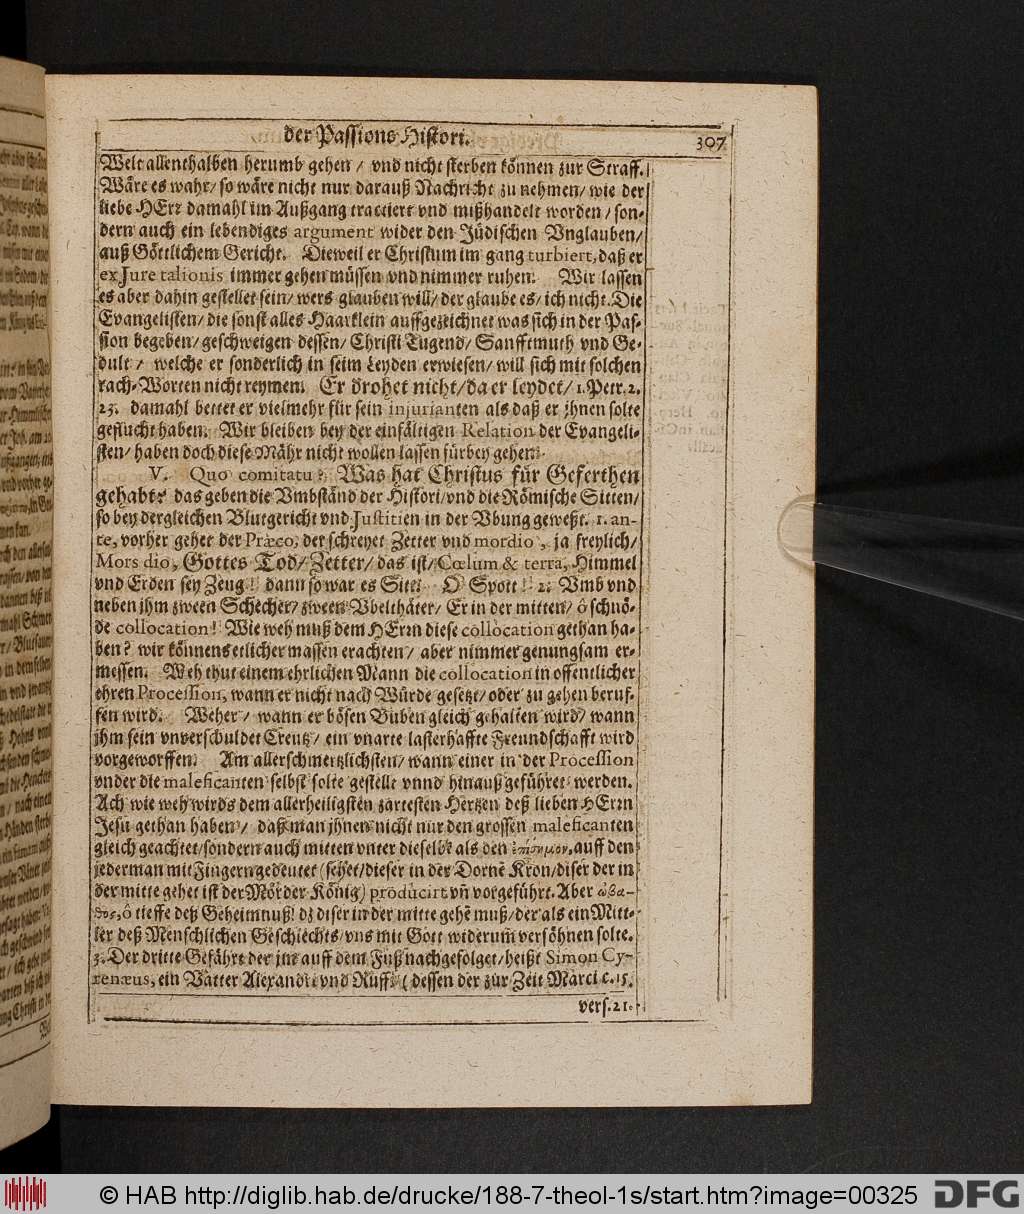 der Passions Histori. 307
Welt allenthalben herumb gehen / vnd nicht sterben können zur Straff.
Wäre es wahr / so wäre nicht nur darauß Nachricht zu nehmen / wie der
liebe HErr damahl im Außgang tractiert vnd mißhandelt worden / son-
dern auch ein lebendiges argument wider den Jüdischen Vnglauben /
auß Göttlichem Gericht. Dieweil er Christum im gang turbiert, daß er
ex Jure talionis immer gehen müssen vnd nimmer ruhen. Wir lassen
es aber dahin gestellet sein / wers glauben will / der glaube es / ich nicht. Die
Evangelisten / die sonst alles Haarklein auffgezeichnet was sich in der Pas-
sion begeben / geschweigen dessen / Christi Tugend / Sanfftmuth vnd Ge-
dult / welche er sonderlich in seim Leyden erwiesen / will sich mit solchen
rach-Worten nicht reymen. Er drohet nicht / da er leydet / 1. Petr. 2.
23. damahl bettet er vielmehr für sein injurianten als daß er jhnen solte
geflucht haben. Wir bleiben bey der einfältigen Relation der Evangeli-
sten / haben doch diese Mähr nicht wollen lassen fürbey gehen.
V. Quo comitatu? Was hat Christus für Geferthen
gehabt? das geben die Vmbständ der Histori / vnd die Römische Sitten /
so bey dergleichen Blutgericht vnd Justitien in der Vbung geweßt. 1. an-
te, vorher gehet der Præco, der schreyet Zetter vnd mordio, ja freylich /
Mors dio, Gottes Tod / Zetter / das ist / Cœlum & terra, Himmel
vnd Erden sey Zeug! dann so war es Sitt. O Spott! 2. Vmb vnd
neben jhm zween Schecher / zween Vbelthäter / Er in der mitten / ô schnö-
de collocation! Wie weh muß dem HErrn diese collocation gethan ha-
ben? wir können s etlicher massen erachten / aber nimmer genungsam er-
messen. Weh thut einem ehrlichen Mann die collocation in offentlicher
ehren Procession, wann er nicht nach Würde gesetzt / oder zu gehen beruf-
fen wird. Weher / wann er bösen Buben gleich gehalten wird / wann
jhm sein vnverschuldet Creutz / ein vnarte lasterhaffte Freundschafft wird
vorgeworffen. Am allerschmertzlichsten / wann einer in der Procession
vnder die maleficanten selbst solte gestellt vnnd hinauß geführet werden.
Ach wie weh wirds dem allerheiligsten zärtesten Hertzen deß lieben HErrn
Jesu gethan haben / daß man jhnen nicht nur den grossen maleficanten
gleich geachtet / sondern auch mitten vnter dieselbe als den ἐπίσημον, auff den
jederman mit Fingern gedeutet (sehet / dieser in der Dornẽ Kron / diser der in
der mitte gehet ist der Mörder König) producirt vñ vorgeführt. Aber ὦ βα-
θος, ô tieffe deß Geheimnuß! dz diser in der mitte gehẽ muß / der als ein Mitt-
ler deß Menschlichen Geschlechts / vns mit Gott widerum̃ versöhnen solte.
3. Der dritte Gefährt der jm auff dem Fuß nachgefolget / heißt Simon Cy-
renæus, ein Vatter Alexandri vnd Ruffi (dessen der zur Zeit Marci c. 15.
vers. 21.
© HAB http://diglib.hab.de/drucke/188-7-theol-1s/start.htm?image=00325 DFG